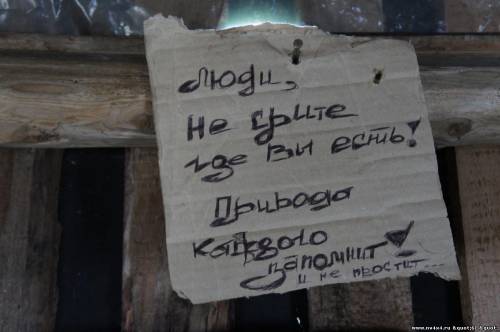 Люди,
Не срите
где вы есть!
Природа
каждого
запомнит!
и не простит...